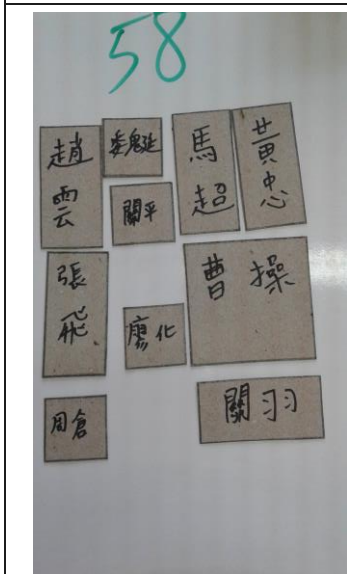 58
趙雲
魏延
馬超
黃忠
關平
張飛
曹操
廖化
周倉
關羽